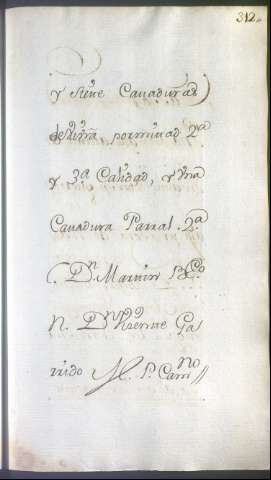 312.
y siete Cavaduras)
de tierra, por mitad 2ª
y 3ª Calidad, y una
Cavadura Parral. 2ª
C. Dn. Martin
N. Dn Vicente Ga
rrido M. P. Cami
no